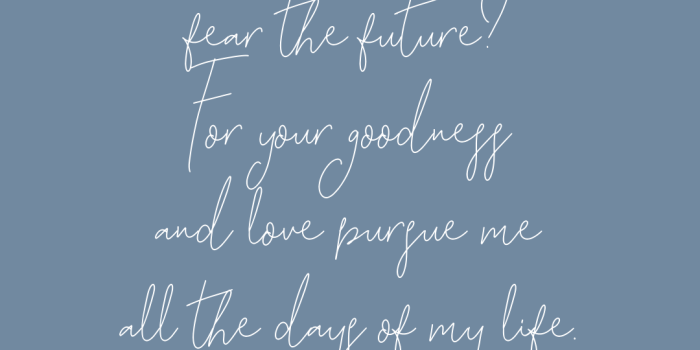 fear the future?
For your goodness
and love pursue me
all the days of my life.